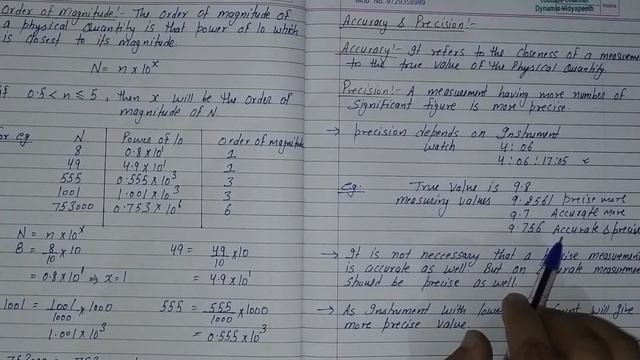 Order of Magnitude!- The order of magnitude of
a physical Quantity is that power of 10 which
is closest to its magnitude
N = n x 10^x
if 0.5 < n ≤ 5, then x will be the order of
magnitude of N.
for eg
N Power of 10 Order of magnitude
8 0.8 x 10^1 1
49 4.9 x 10^1 1
555 0.555 x 10^3 3
1001 1.001 x 10^3 3
753000 0.753 x 10^6 6
N = n x 10^x
8 = 8/10 x 10 49 = 49/10 x 10
= 0.8 x 10^1 ⇒ x = 1 = 4.9 x 10^1
1001 = 1001/1000 x 1000 555 = 555/1000 x 1000
1.001 x 10^3 = 0.555 x 10^3
Dynamic Vidyapeeth
Accuracy & Precision!-
Accuracy!- It refers to the closeness of a measurem
to the true value of the Physical Quantity.
Precision!- A measurment having more number of
significant figure is more precise.
→ precision depends on Instrument
watch 4:06
4:06:17:05
eg. True value is 9.8
measuring values 9.8561 precise more
9.7 Accurate more
9.756 Accurate & precise
→ It is not neccessary that a measuremen
is accurate as well. But an measureme
should be precise as well.
→ As Instrument with will give
more precise value.